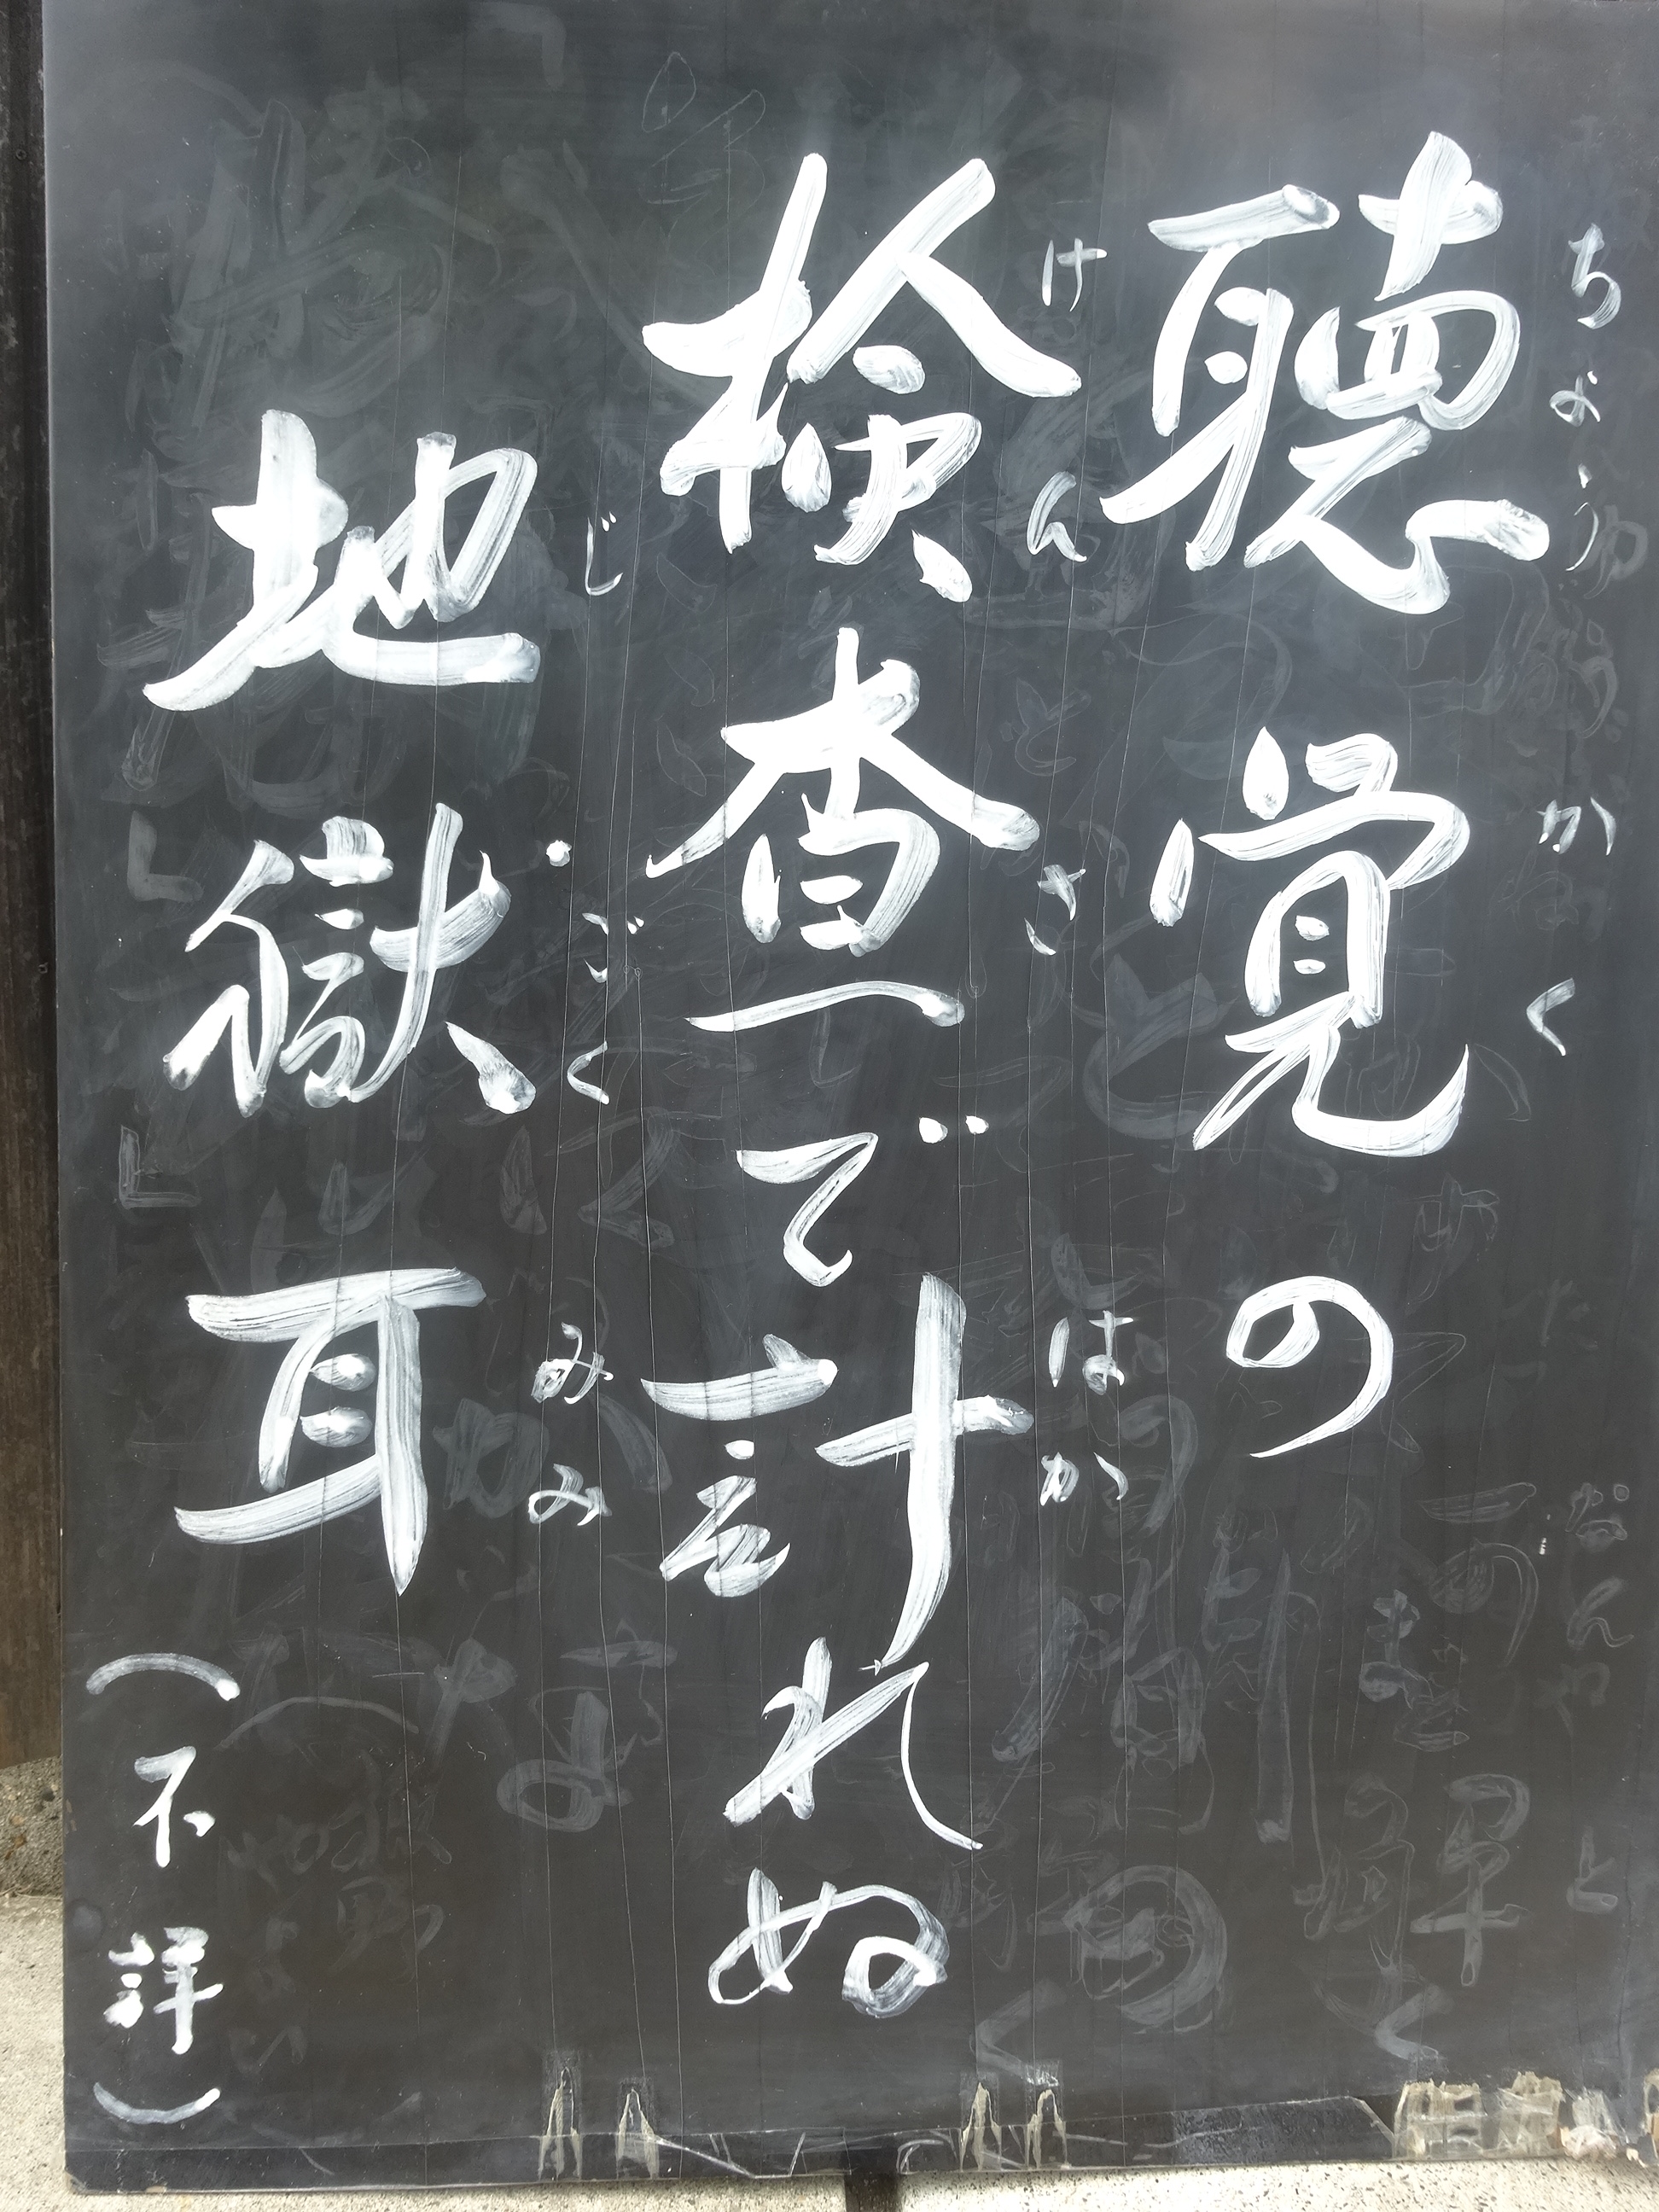 聴覚の
ちょうかく
検査で計れぬ
けんさ はか
地獄耳
じごくみみ
(不詳)